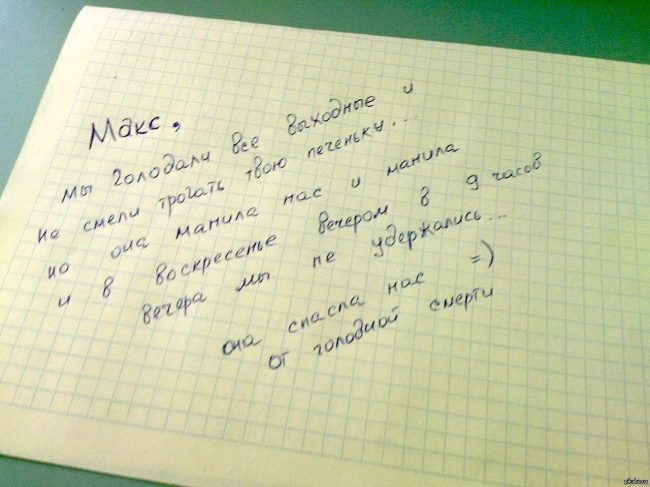 Макс,
мы голодали все выходные и
не смели трогать твою печеньку...
но она манила нас и манила
и в воскресенье вечером в 9 часов
вечера мы не удержались...
она спасла нас =)
от голодной смерти
pikabu.ru